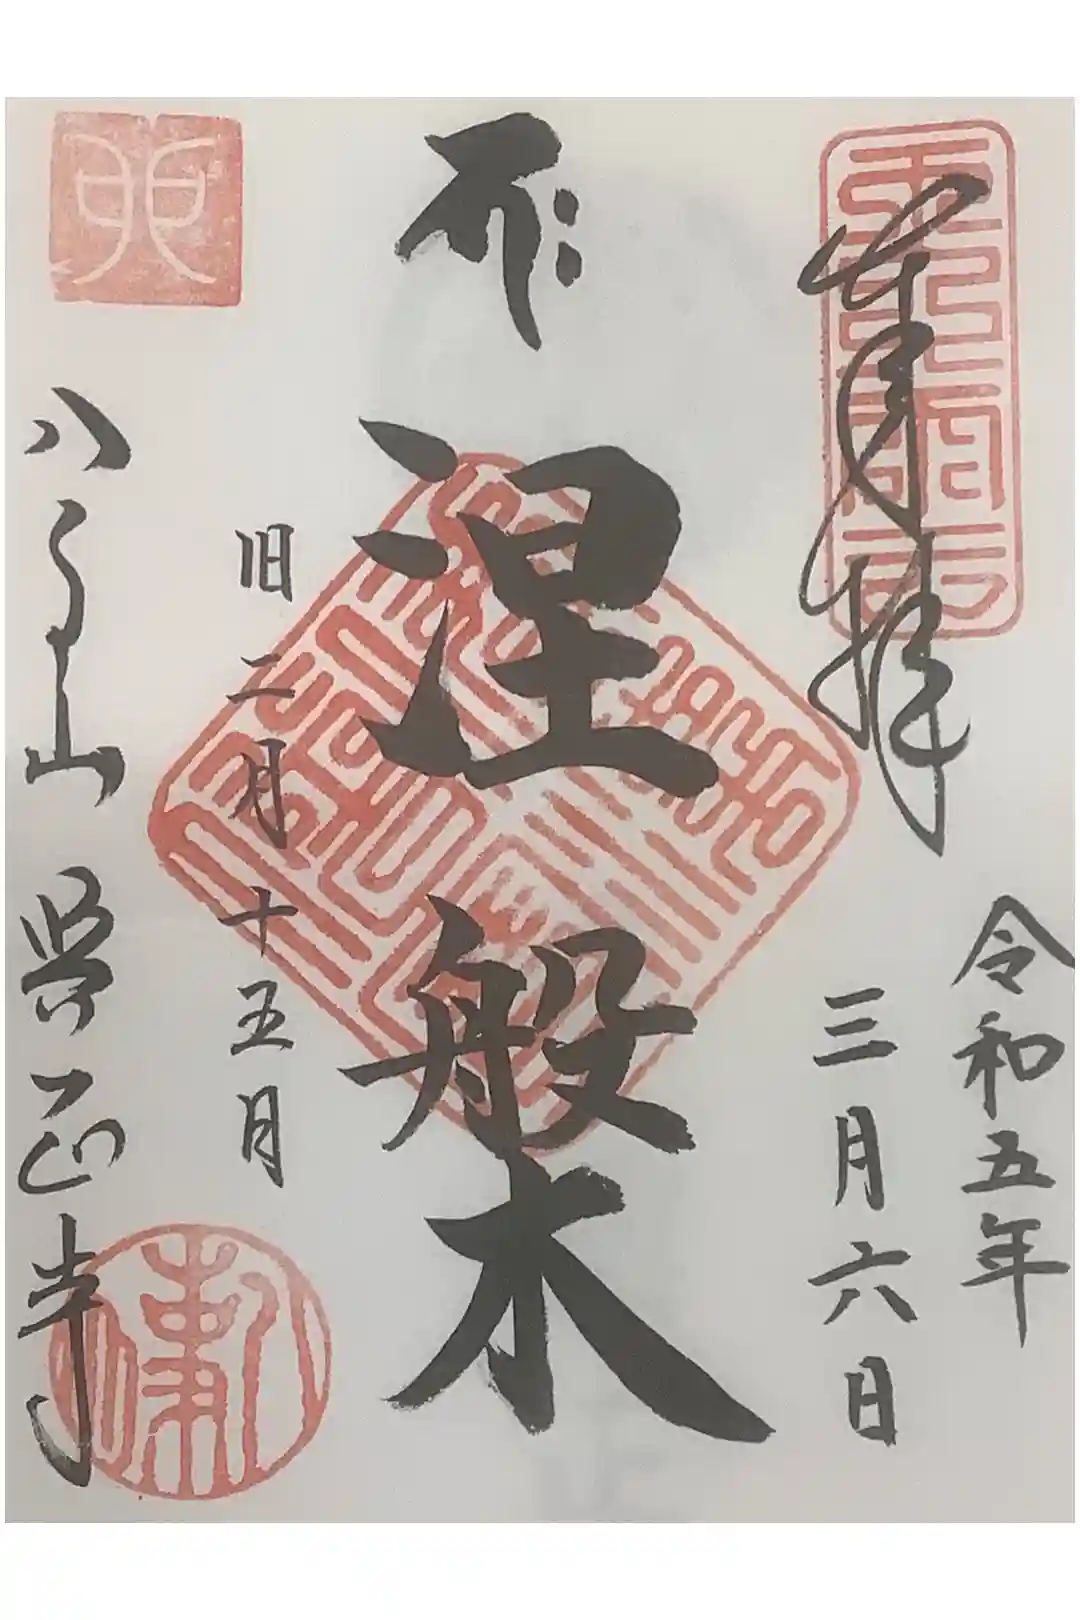 奉拝
令和五年
三月六日
涅般木
旧二月十五月
八事山 興正寺